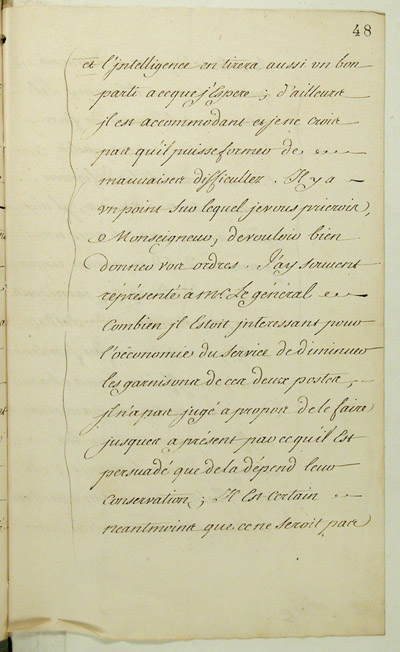 48
et l'jntelligence en tirera aussi un bon
parti a ce que j'Espere ; d'ailleurs
jl est accommodant et je ne crois
pas qu'il puisse former de
mauvaises difficultez . Il y a
un point sur lequel je vous prierois,
Monseigneur, de vouloir bien
donner vos ordres . J'ay souvent
répresenté a Mr. Le général
Combien jl Estoit jnteressant pour
l'oeconomie du service de diminuer
les garnisons de ces deux postes,
jl n'a pas jugé a propos de le faire
jusques a présent parce qu'il Est
persuadé que de la dépend leur
Conservation ; Il Est certain
neantmoins que ce ne seroit pas